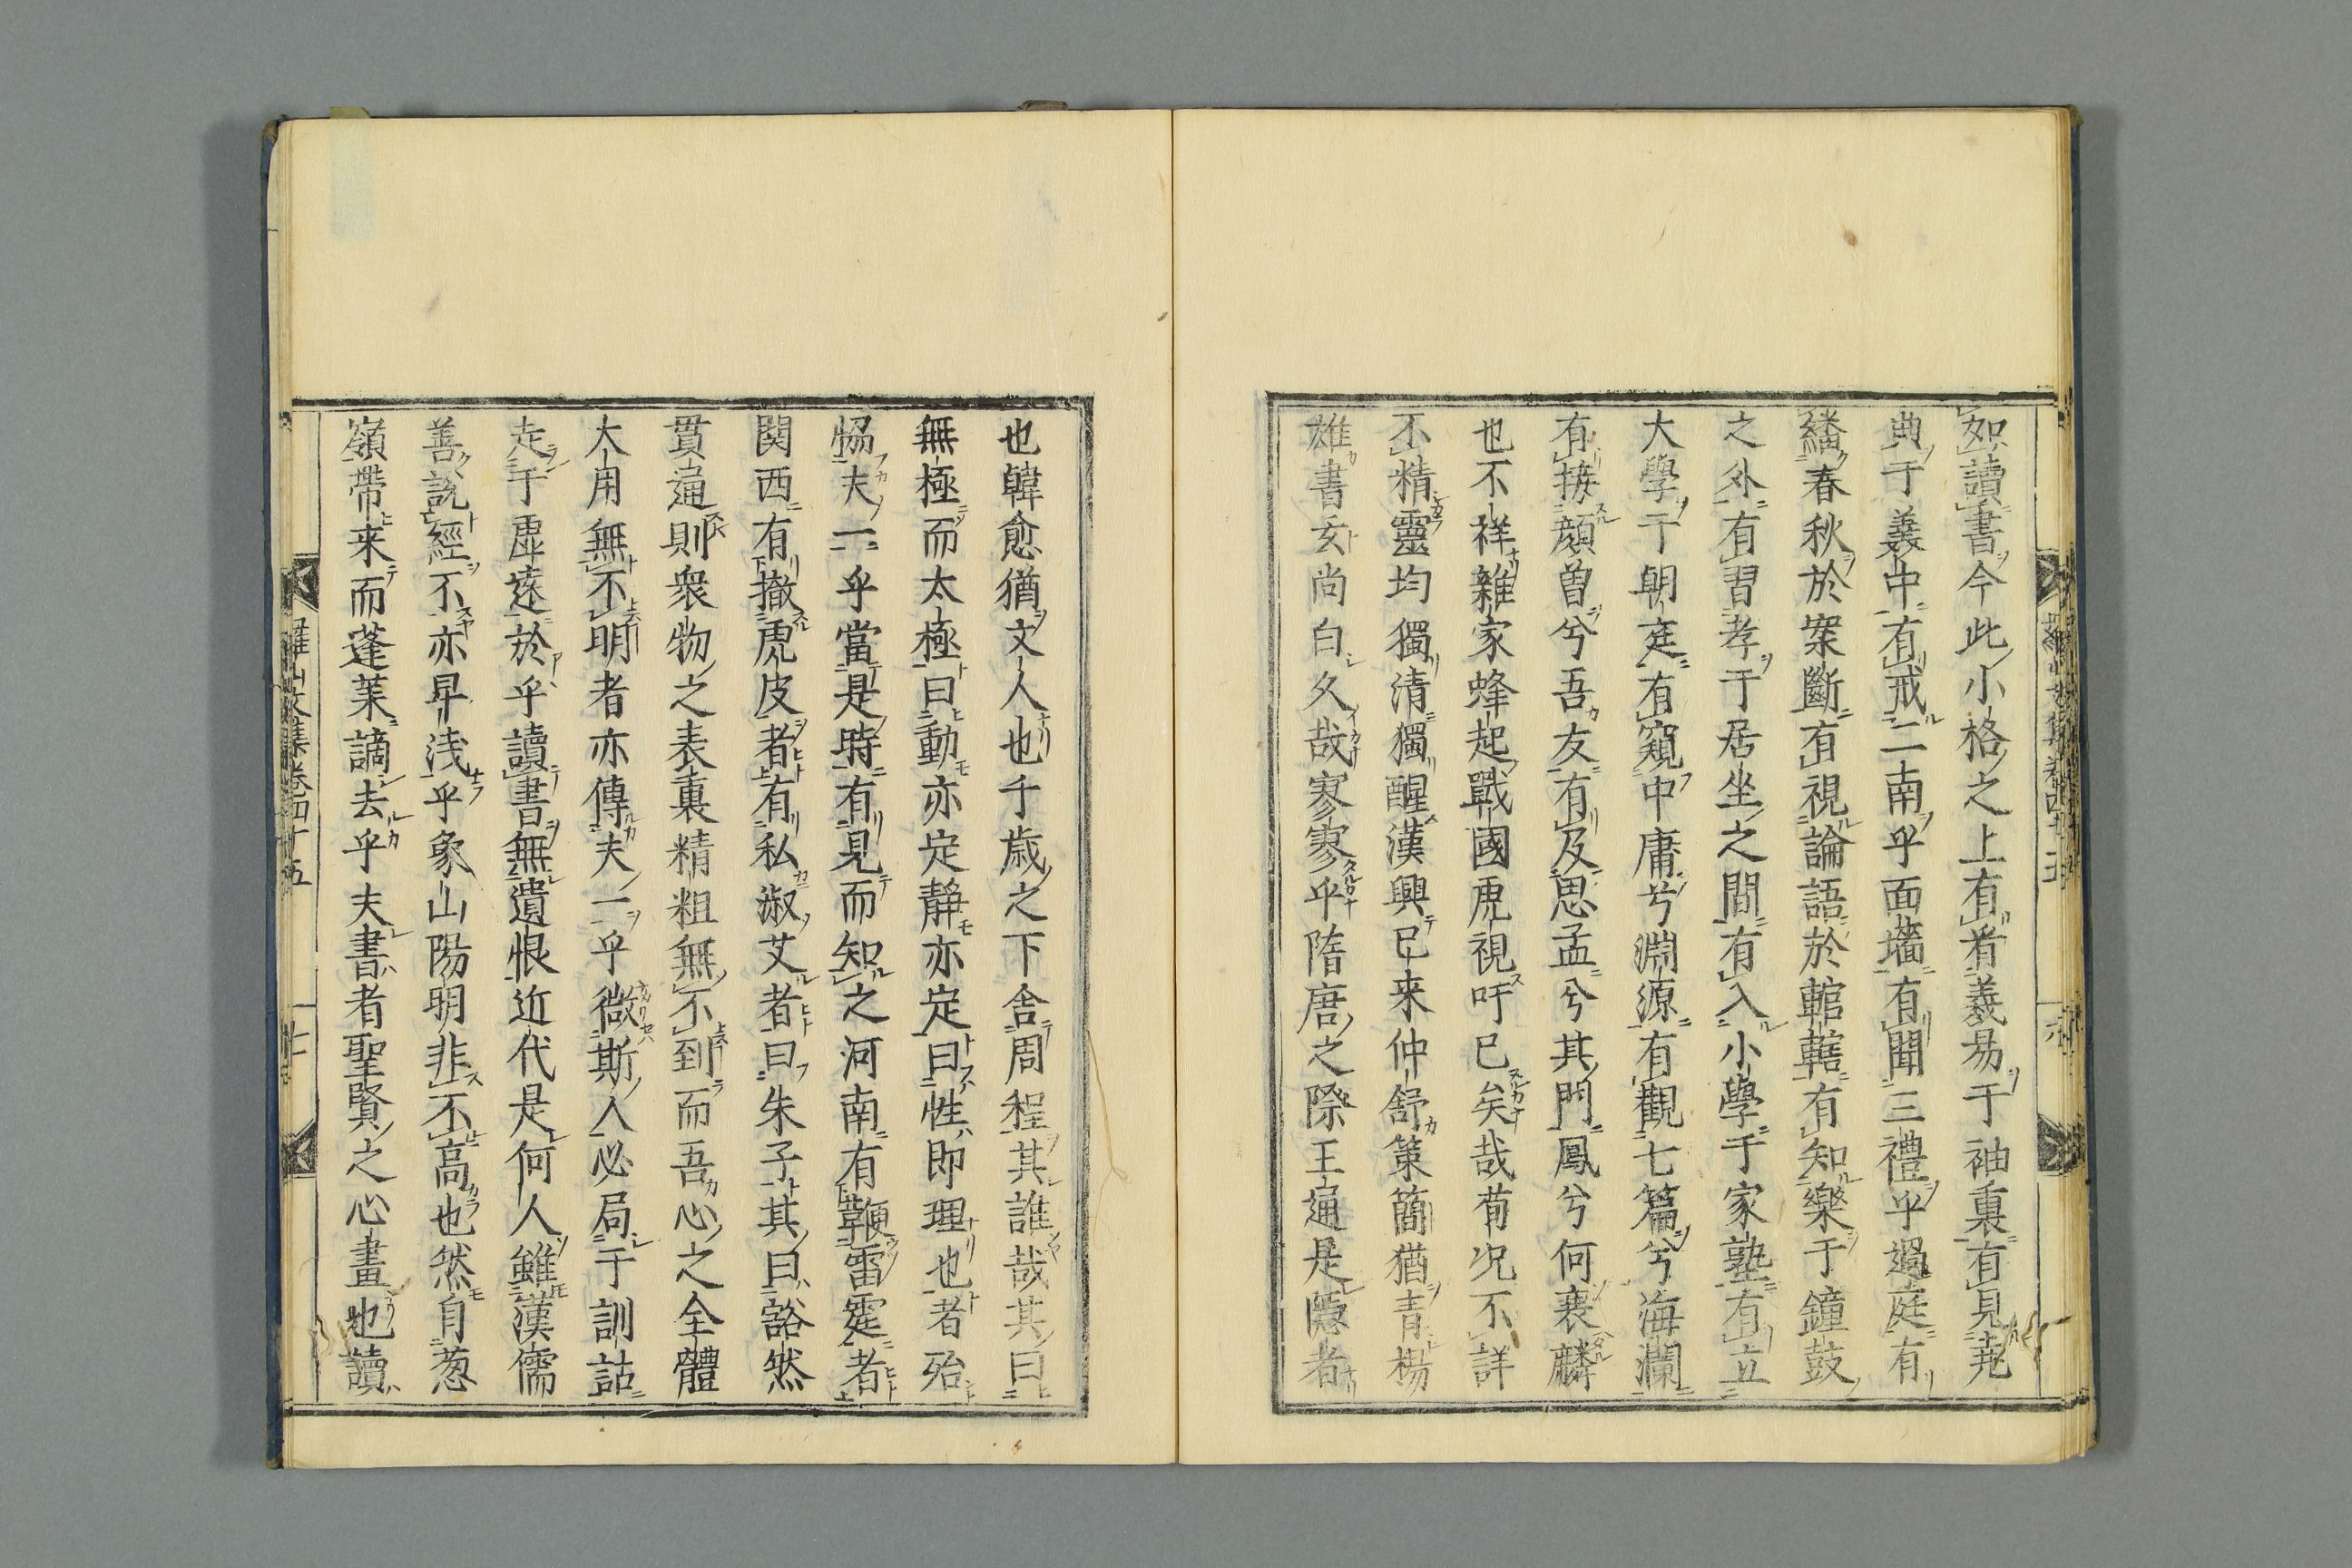 如讀書今此小格之上有看義易于袖裏有見尭
典于羹中有戒二南乎面墻有聞三禮乎過庭有
繙春秋於案斷有視論語於輨轄有知樂于鐘鼓
之外有習孝于居坐之間有入小學于家塾有立
大學于朝廷有窺中庸兮淵源有觀七篇兮海瀾
有接顔曽兮吾友有及思孟兮其門鳳兮何衰麟
也不祥雜家蜂起戰國虎視吁已矣哉荀况不詳
不精靈均獨清獨醒漢興已来仲舒策簡猶青楊
雄書玄尚白久哉寥寥乎隋唐之際王通是隱者
也韓愈猶文人也千歳之下舎周程其誰哉其曰
無極而太極曰動亦定靜亦定曰性即理也者殆
惕夫一乎當是時有見而知之河南有鞭雷霆者
関西有撤虎皮者有私淑艾者曰朱子其曰豁然
貫通則衆物之表裏精粗無不到而吾心之全體
大用無不明者亦傳夫一乎微斯人必局于訓詁
走于虚遠於乎讀書無遺恨近代是何人雖漢儒
善説經不亦卑浅乎象山陽明非不高也然自葱
嶺帶来而蓬莱謫去乎夫書者聖賢之心畫也讀
羅山文集巻四十五